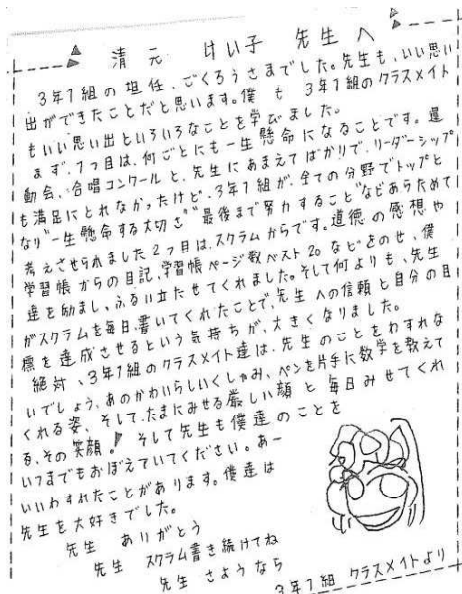 清元 けい子 先生へ
3年1組の担任、ごくろうさまでした。先生も、いい思い
出ができたことだと思います。僕も 3年1組のクラスメイト
もいい思い出といろいろなことを学びました。
まず、1つ目は、何ごとにも一生懸命になることです。運
動会、合唱コンクールと、先生にあまえてばかりで、リーダーシップ
も満足にとれなかったけど、3年1組が、全ての分野でトップと
なり"一生懸命する大切さ""最後まで努力すること"などあらためて
考えさせられました2つ目は、スクラムからです。道徳の感想や
学習帳からの日記、学習帳ページ数ベスト20などをのせ、僕
達を励まし、ふるい立たせてくれました。そして何よりも、先生
がスクラムを毎日、書いてくれたことで、先生への信頼と自分の目
標を達成させるという気持ちが、大きくなりました。
絶対、3年1組のクラスメイト達は、先生のことをわすれな
いでしょう、あのかわいらしいくしゃみ、ペンを片手に数学を教えて
くれる姿、そして、たまにみせる厳しい顔と毎日みせてくれ
る、その笑顔!そして先生も僕達のことを
いつまでもおぼえていてください。あー
いいわすれたことがあります。僕達は
先生を大好きでした。
先生 ありがとう
先生 スクラム書き続けてね
先生 さようなら
3年1組 クラスメイトより